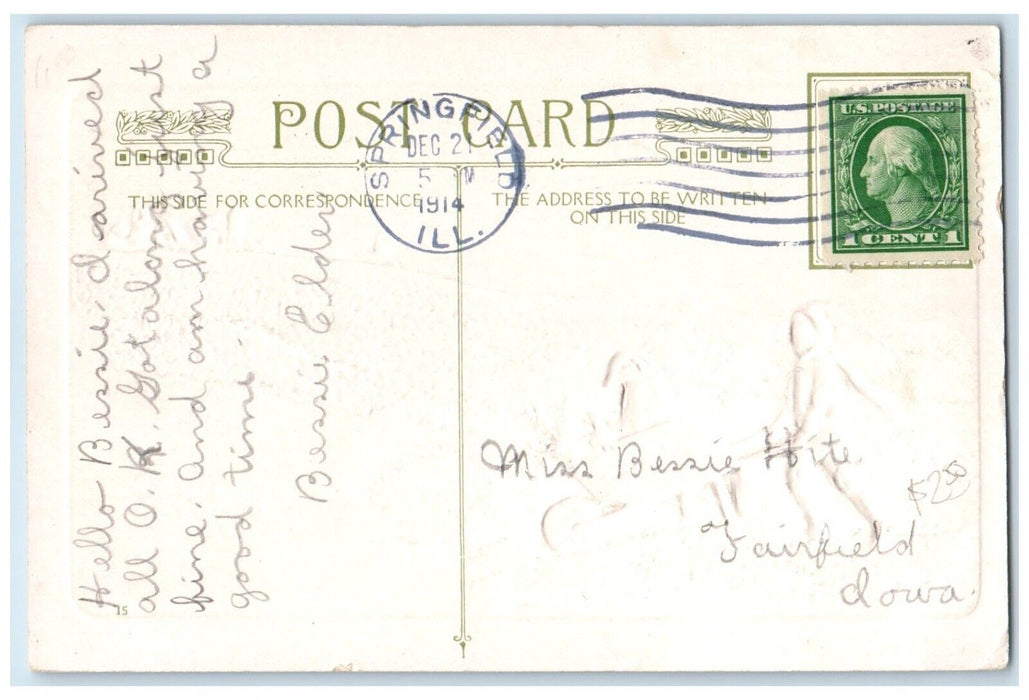 POST CARD
THIS SIDE FOR CORRESPONDENCE
THE ADDRESS TO BE WRITTEN
ON THIS SIDE
SPRINGFIELD
DEC 21
5 M
1914
ILL.
U.S. POSTAGE
1 CENT 1
Hello Bessie, I arrived
all O.K. Got along just
fine, and am having a
good time.
Bessie Elder
Miss Bessie Hite
Fairfield
Iowa.
$2.50
15